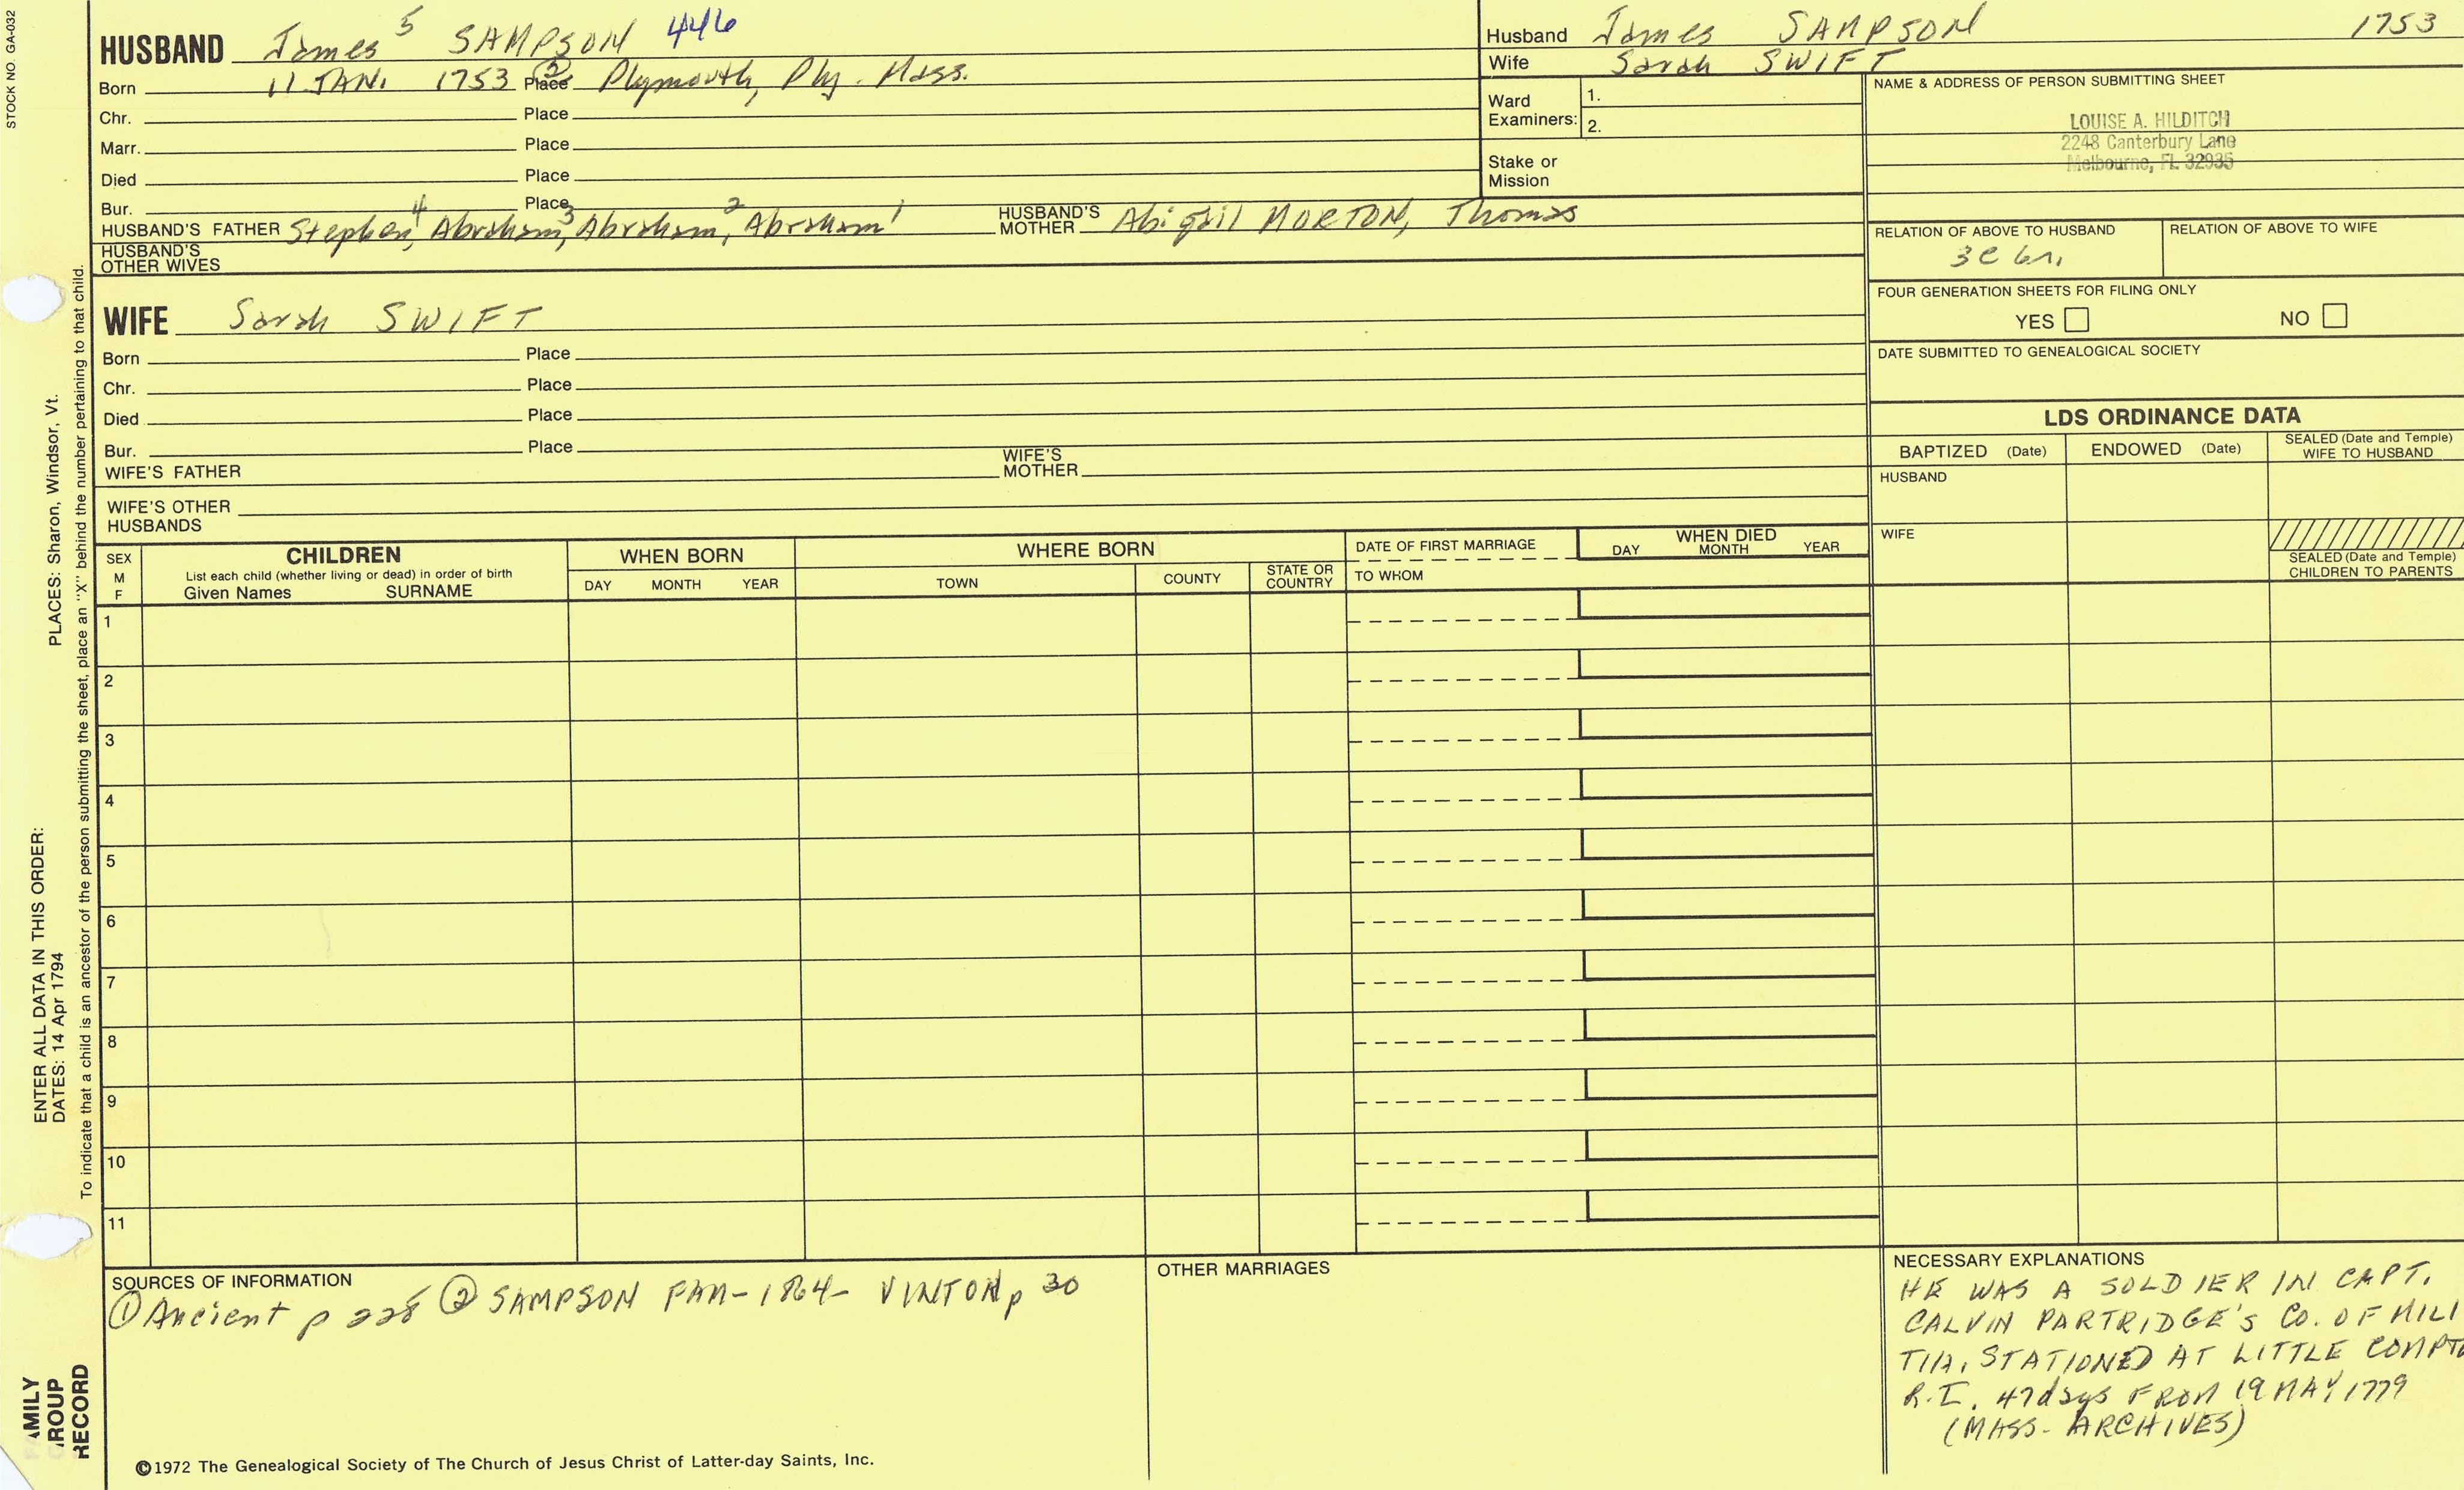 STOCK NO. GA-032
HUSBAND James 5 SAMPSON 446
Born 11 JAN. 1753 Place (2) Plymouth, Ply. Mass.
Chr. Place
Marr. Place
Died Place
Bur. Place
HUSBAND'S FATHER Stephen 4, Abraham 3, Abraham 2, Abraham 1 HUSBAND'S MOTHER Abigail MORTON, Thomas
HUSBAND'S OTHER WIVES
WIFE Sarah SWIFT
Born Place
Chr. Place
Died Place
Bur. Place
WIFE'S FATHER WIFE'S MOTHER
WIFE'S OTHER HUSBANDS
Husband James SAMPSON 1753
Wife Sarah SWIFT
Ward Examiners: 1.
2.
Stake or Mission
NAME & ADDRESS OF PERSON SUBMITTING SHEET
LOUISE A. HILDITCH
2248 Canterbury Lane
Melbourne, FL 32935
RELATION OF ABOVE TO HUSBAND RELATION OF ABOVE TO WIFE
3c 6r.
FOUR GENERATION SHEETS FOR FILING ONLY
YES NO
DATE SUBMITTED TO GENEALOGICAL SOCIETY
LDS ORDINANCE DATA
BAPTIZED (Date) ENDOWED (Date) SEALED (Date and Temple) WIFE TO HUSBAND
HUSBAND
WIFE
SEALED (Date and Temple) CHILDREN TO PARENTS
SEX M F
CHILDREN
List each child (whether living or dead) in order of birth
Given Names SURNAME
WHEN BORN
DAY MONTH YEAR
WHERE BORN
TOWN COUNTY STATE OR COUNTRY
DATE OF FIRST MARRIAGE
TO WHOM
WHEN DIED
DAY MONTH YEAR
1
2
3
4
5
6
7
8
9
10
11
SOURCES OF INFORMATION
(1) Ancient p 228 (2) SAMPSON FAM-1864- VINTON p 30
OTHER MARRIAGES
NECESSARY EXPLANATIONS
HE WAS A SOLDIER IN CAPT.
CALVIN PARTRIDGE'S CO. OF MILI
TIA, STATIONED AT LITTLE COMPT
R.I. 47 days FROM 19 MAY 1779
(MASS- ARCHIVES)
©1972 The Genealogical Society of The Church of Jesus Christ of Latter-day Saints, Inc.
PLACES: Sharon, Windsor, Vt.
ENTER ALL DATA IN THIS ORDER:
DATES: 14 Apr 1794
To indicate that a child is an ancestor of the person submitting the sheet, place an "X" behind the number pertaining to that child.
FAMILY
GROUP
RECORD